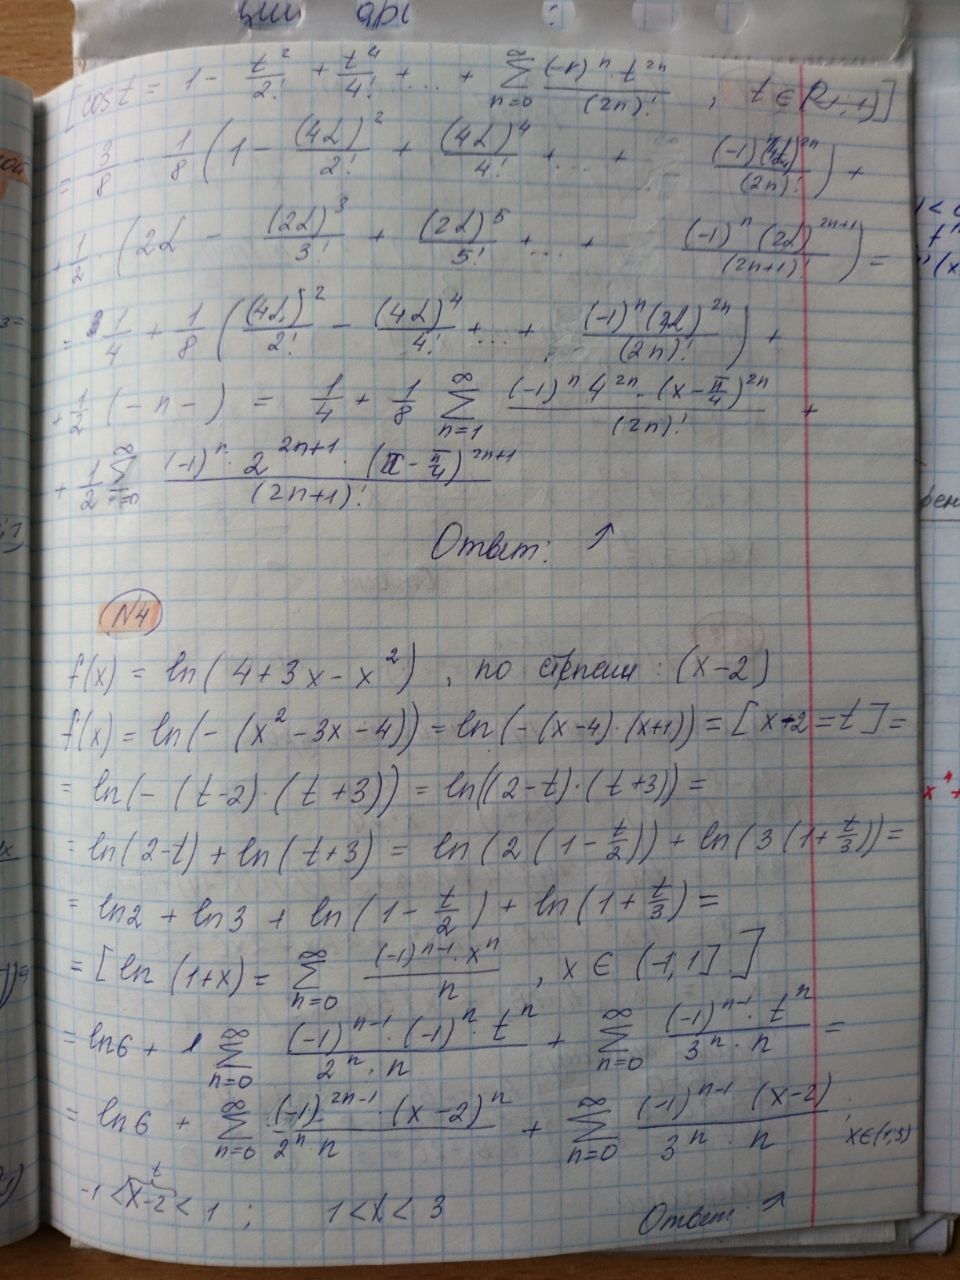 ции
[cos t = 1 - t²/2! + t⁴/4! + ... + ∑_{n=0}^{∞} (-1)ⁿ · t²ⁿ/(2n)! , t ∈ R
= 3/8 - 1/8 (1 - (4α)²/2! + (4α)⁴/4! + ... + (-1)ⁿ(4α)²ⁿ/(2n)!) +
+ 1/2 · (2α - (2α)³/3! + (2α)⁵/5! + ... + (-1)ⁿ(2α)²ⁿ⁺¹/(2n+1)!) =
= 1/4 + 1/8 ((4α)²/2! - (4α)⁴/4! + ... + (-1)ⁿ(4α)²ⁿ/(2n)!) +
+ 1/2 (-n-) = 1/4 + 1/8 ∑_{n=1}^{∞} (-1)ⁿ 4²ⁿ · (x - π/4)²ⁿ/(2n)! +
+ 1/2 ∑_{n=0}^{∞} (-1)ⁿ · 2²ⁿ⁺¹ · (x - π/4)²ⁿ⁺¹/(2n+1)!
Ответ: ↗
N4
f(x) = ln(4+3x-x²) , по степени : (x-2)
f(x) = ln(-(x²-3x-4)) = ln(-(x-4)·(x+1)) = [x-2=t] =
= ln(-(t-2)·(t+3)) = ln((2-t)·(t+3)) =
= ln(2-t) + ln(t+3) = ln(2(1-t/2)) + ln(3(1+t/3)) =
= ln2 + ln3 + ln(1-t/2) + ln(1+t/3) =
= [ln(1+x) = ∑_{n=0}^{∞} (-1)ⁿ⁻¹·xⁿ/n , x ∈ (-1,1]]
= ln6 + ∑_{n=0}^{∞} (-1)ⁿ⁻¹·(-1)ⁿ·tⁿ/(2ⁿ·n) + ∑_{n=0}^{∞} (-1)ⁿ⁻¹·tⁿ/(3ⁿ·n) =
= ln6 + ∑_{n=0}^{∞} (-1)²ⁿ⁻¹·(x-2)ⁿ/(2ⁿ·n) + ∑_{n=0}^{∞} (-1)ⁿ⁻¹(x-2)/(3ⁿ·n) ; x∈(1,3)
t
-1 < x-2 < 1 ; 1 < x < 3
Ответ: ↗